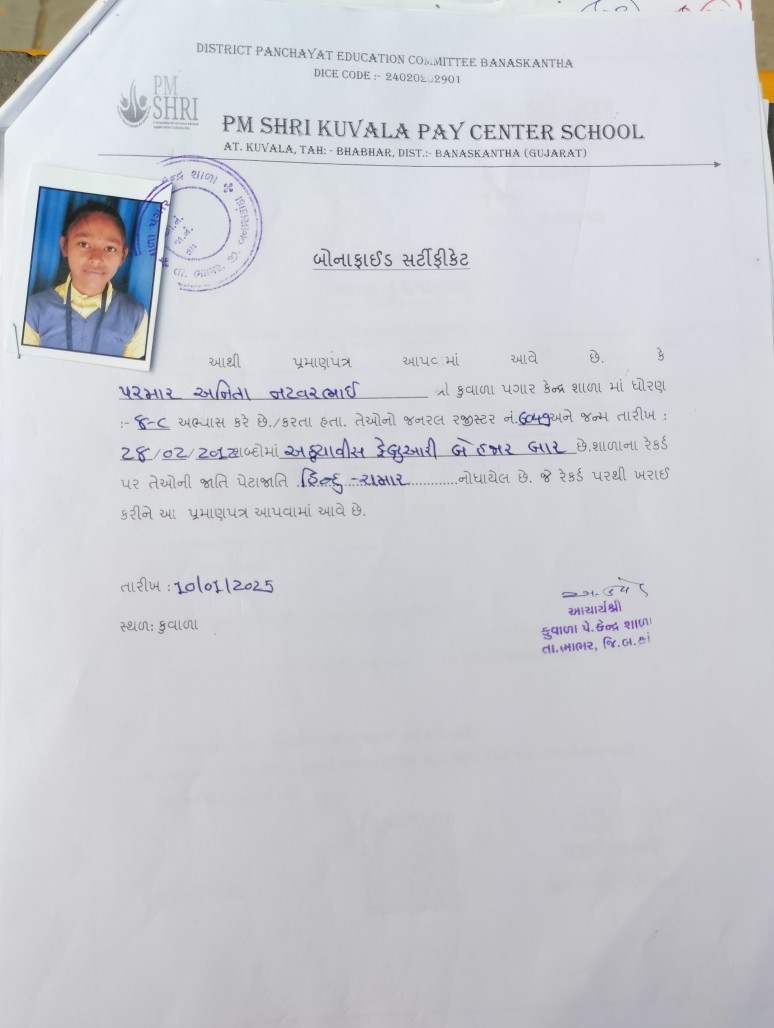 DISTRICT PANCHAYAT EDUCATION COMMITTEE BANASKANTHA
DICE CODE :- 24020 2901
PM
SHRI
PM SHRI KUVALA PAY CENTER SCHOOL
AT. KUVALA, TAH: - BHABHAR, DIST.:- BANASKANTHA (GUJARAT)
બોનાફાઈડ સર્ટીફીકેટ
આથી પ્રમાણપત્ર આપવામાં આવે છે. કે
પરમાર અનિતા નટવરભાઈ કુવાળા પગાર કેન્દ્ર શાળા માં ધોરણ
:- ૪-C અભ્યાસ કરે છે./કરતા હતા. તેઓનો જનરલ રજીસ્ટર નં. અને જન્મ તારીખ :
28/02/2012 શબ્દોમાં અઠ્ઠયાવીસ ફેબ્રુઆરી બે હજાર બાર છે.શાળાના રેકર્ડ
પર તેઓની જાતિ પેટાજાતિ .હિન્દુ - ચમાર............નોધાયેલ છે. જે રેકર્ડ પરથી ખરાઈ
કરીને આ પ્રમાણપત્ર આપવામાં આવે છે.
તારીખ : 10/01/2025
સ્થળ: કુવાળા
આચાર્યશ્રી
કુવાળા પે.કેન્દ્ર શાળા
તા.ભાભર, જિ.બ.કાં